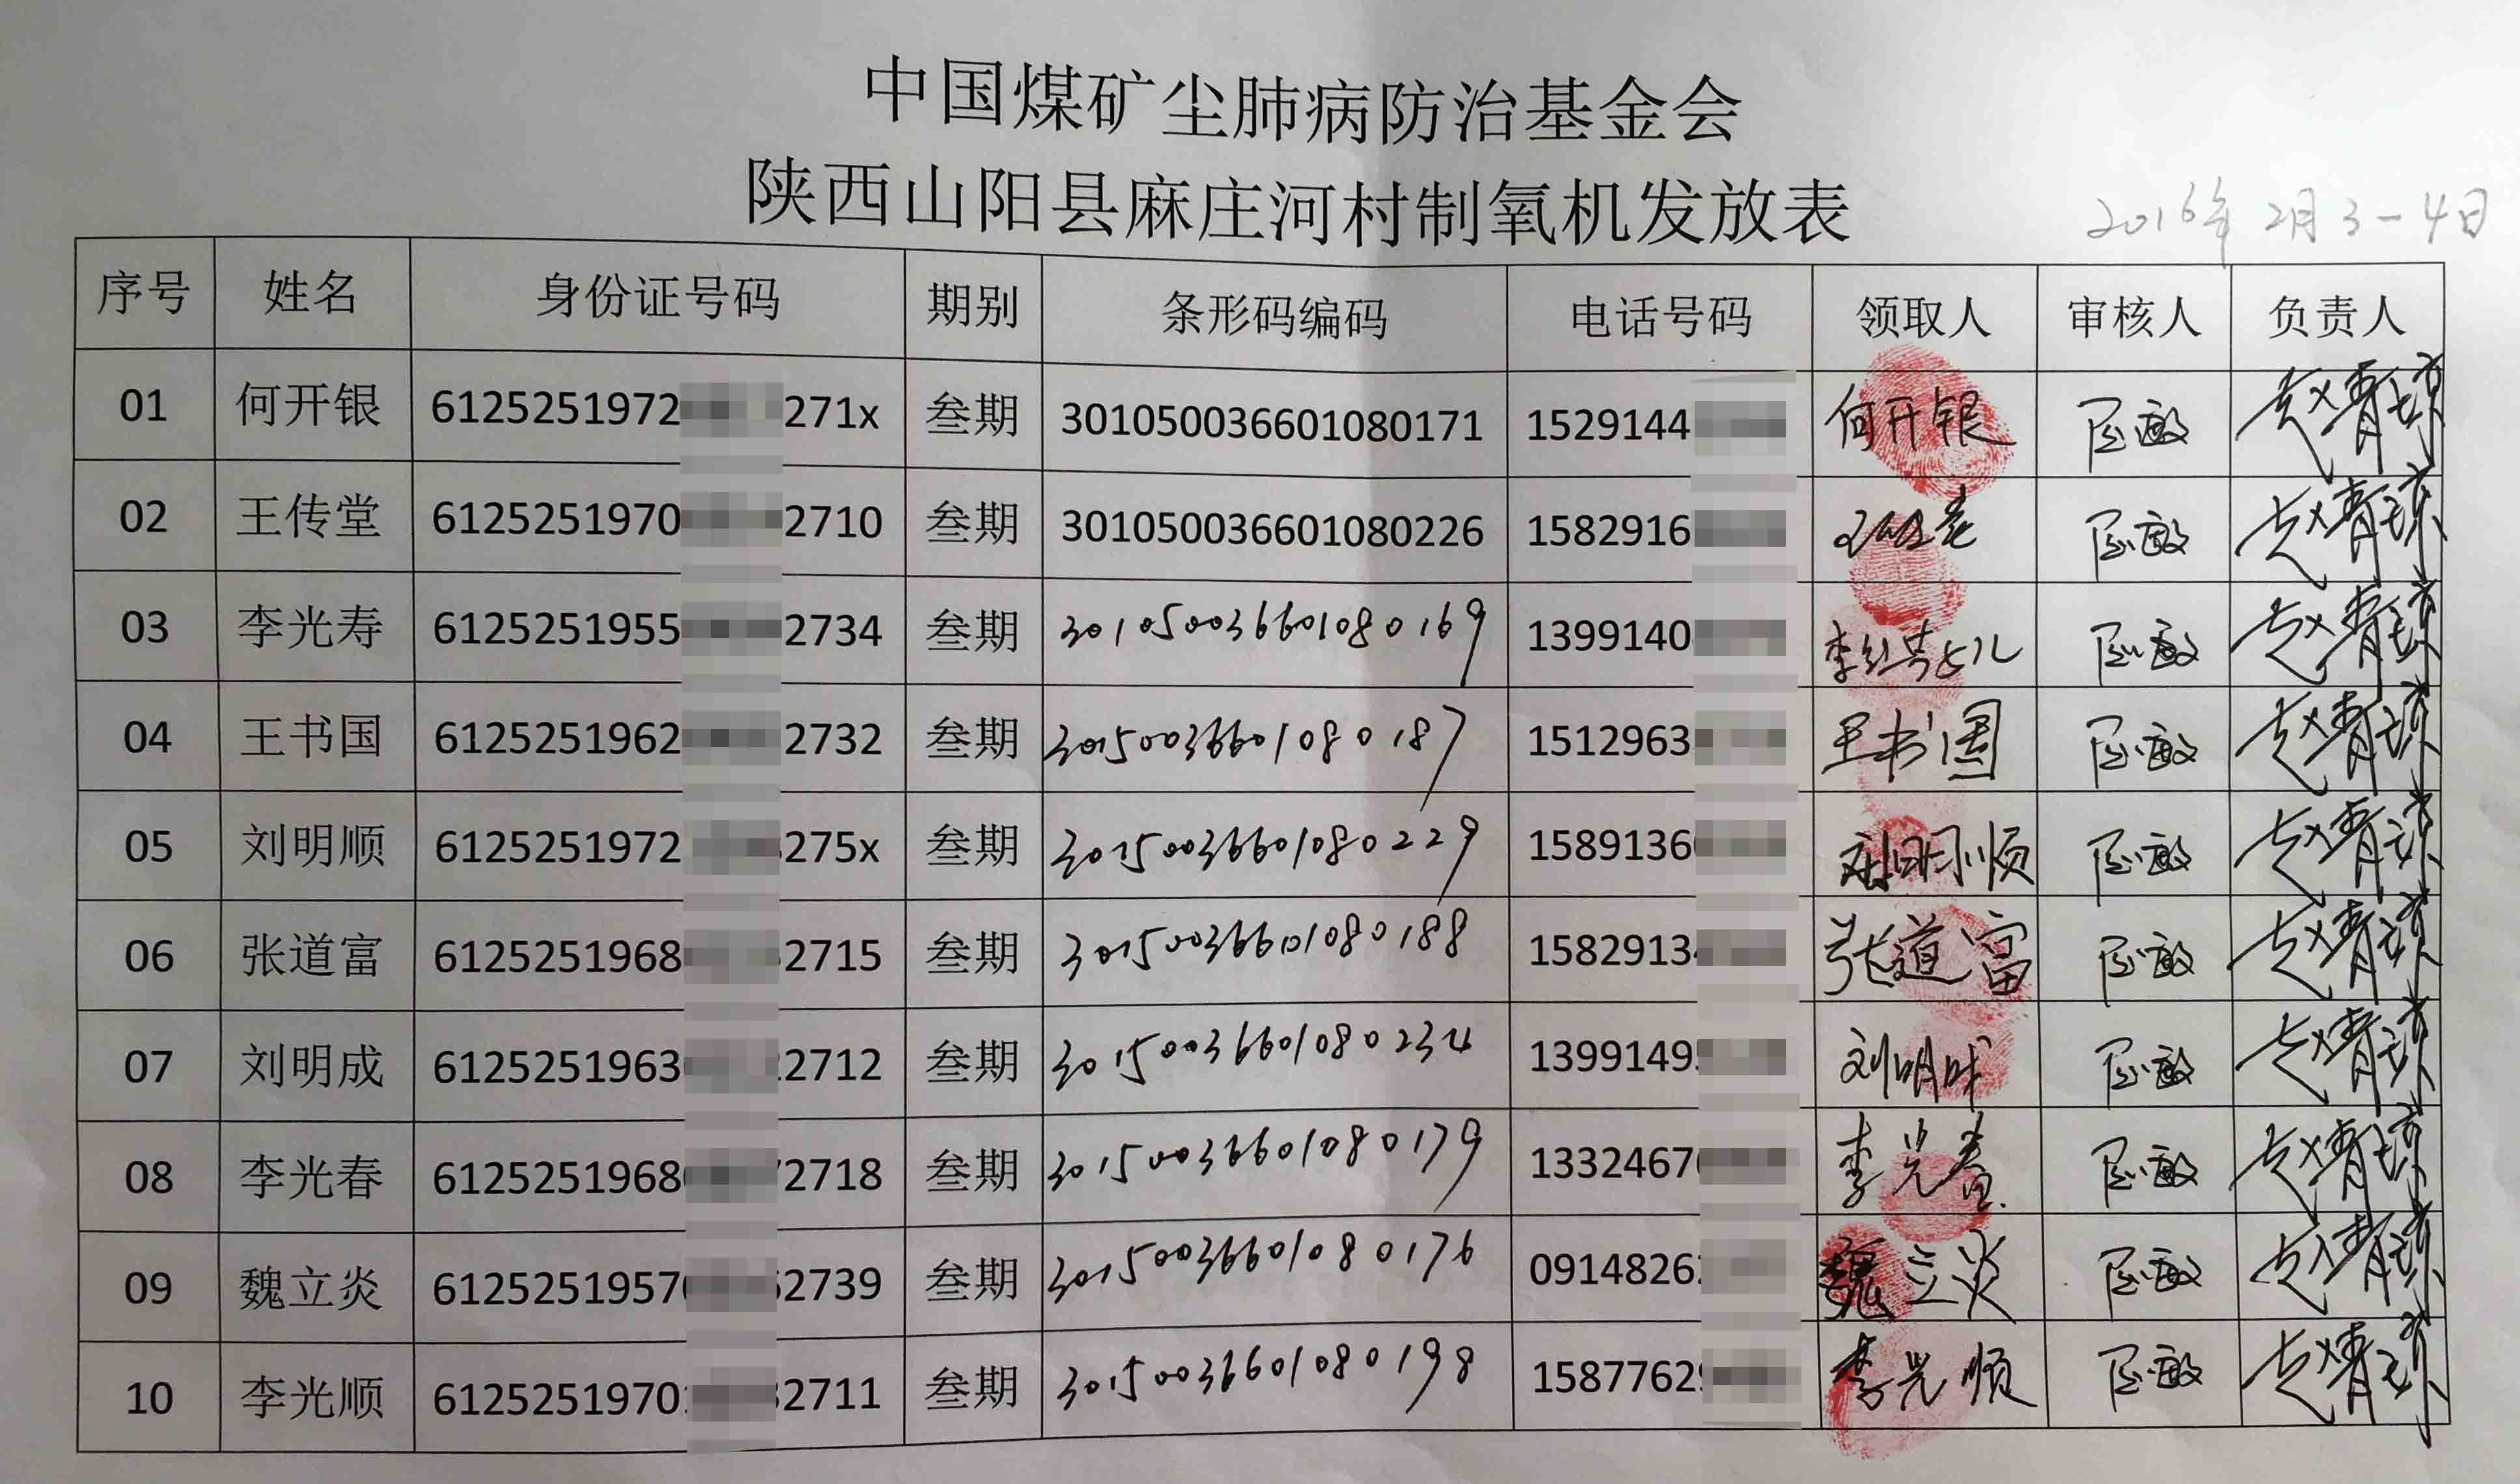 中国煤矿尘肺病防治基金会
陕西山阳县麻庄河村制氧机发放表
2016年2月3-4日
序号 姓名 身份证号码 期别 条形码编码 电话号码 领取人 审核人 负责人
01 何开银 6125251972 271x 叁期 301050036601080171 1529144 何开银 赵青琼
02 王传堂 6125251970 2710 叁期 301050036601080226 1582916 赵青琼
03 李光寿 6125251955 2734 叁期 301050036601080169 1399140 赵青琼
04 王书国 6125251962 2732 叁期 30150036601080187 1512963 王书国 赵青琼
05 刘明顺 6125251972 275x 叁期 30150036601080229 1589136 刘明顺 赵青琼
06 张道富 6125251968 2715 叁期 30150036601080188 1582913 张道富 赵青琼
07 刘明成 6125251963 2712 叁期 30150036601080234 1399149 刘明成 赵青琼
08 李光春 6125251968 2718 叁期 30150036601080179 1332467 李光春 赵青琼
09 魏立炎 6125251957 2739 叁期 30150036601080176 09148262 魏立炎 赵青琼
10 李光顺 6125251970 2711 叁期 30150036601080198 15877629 李光顺 赵青琼